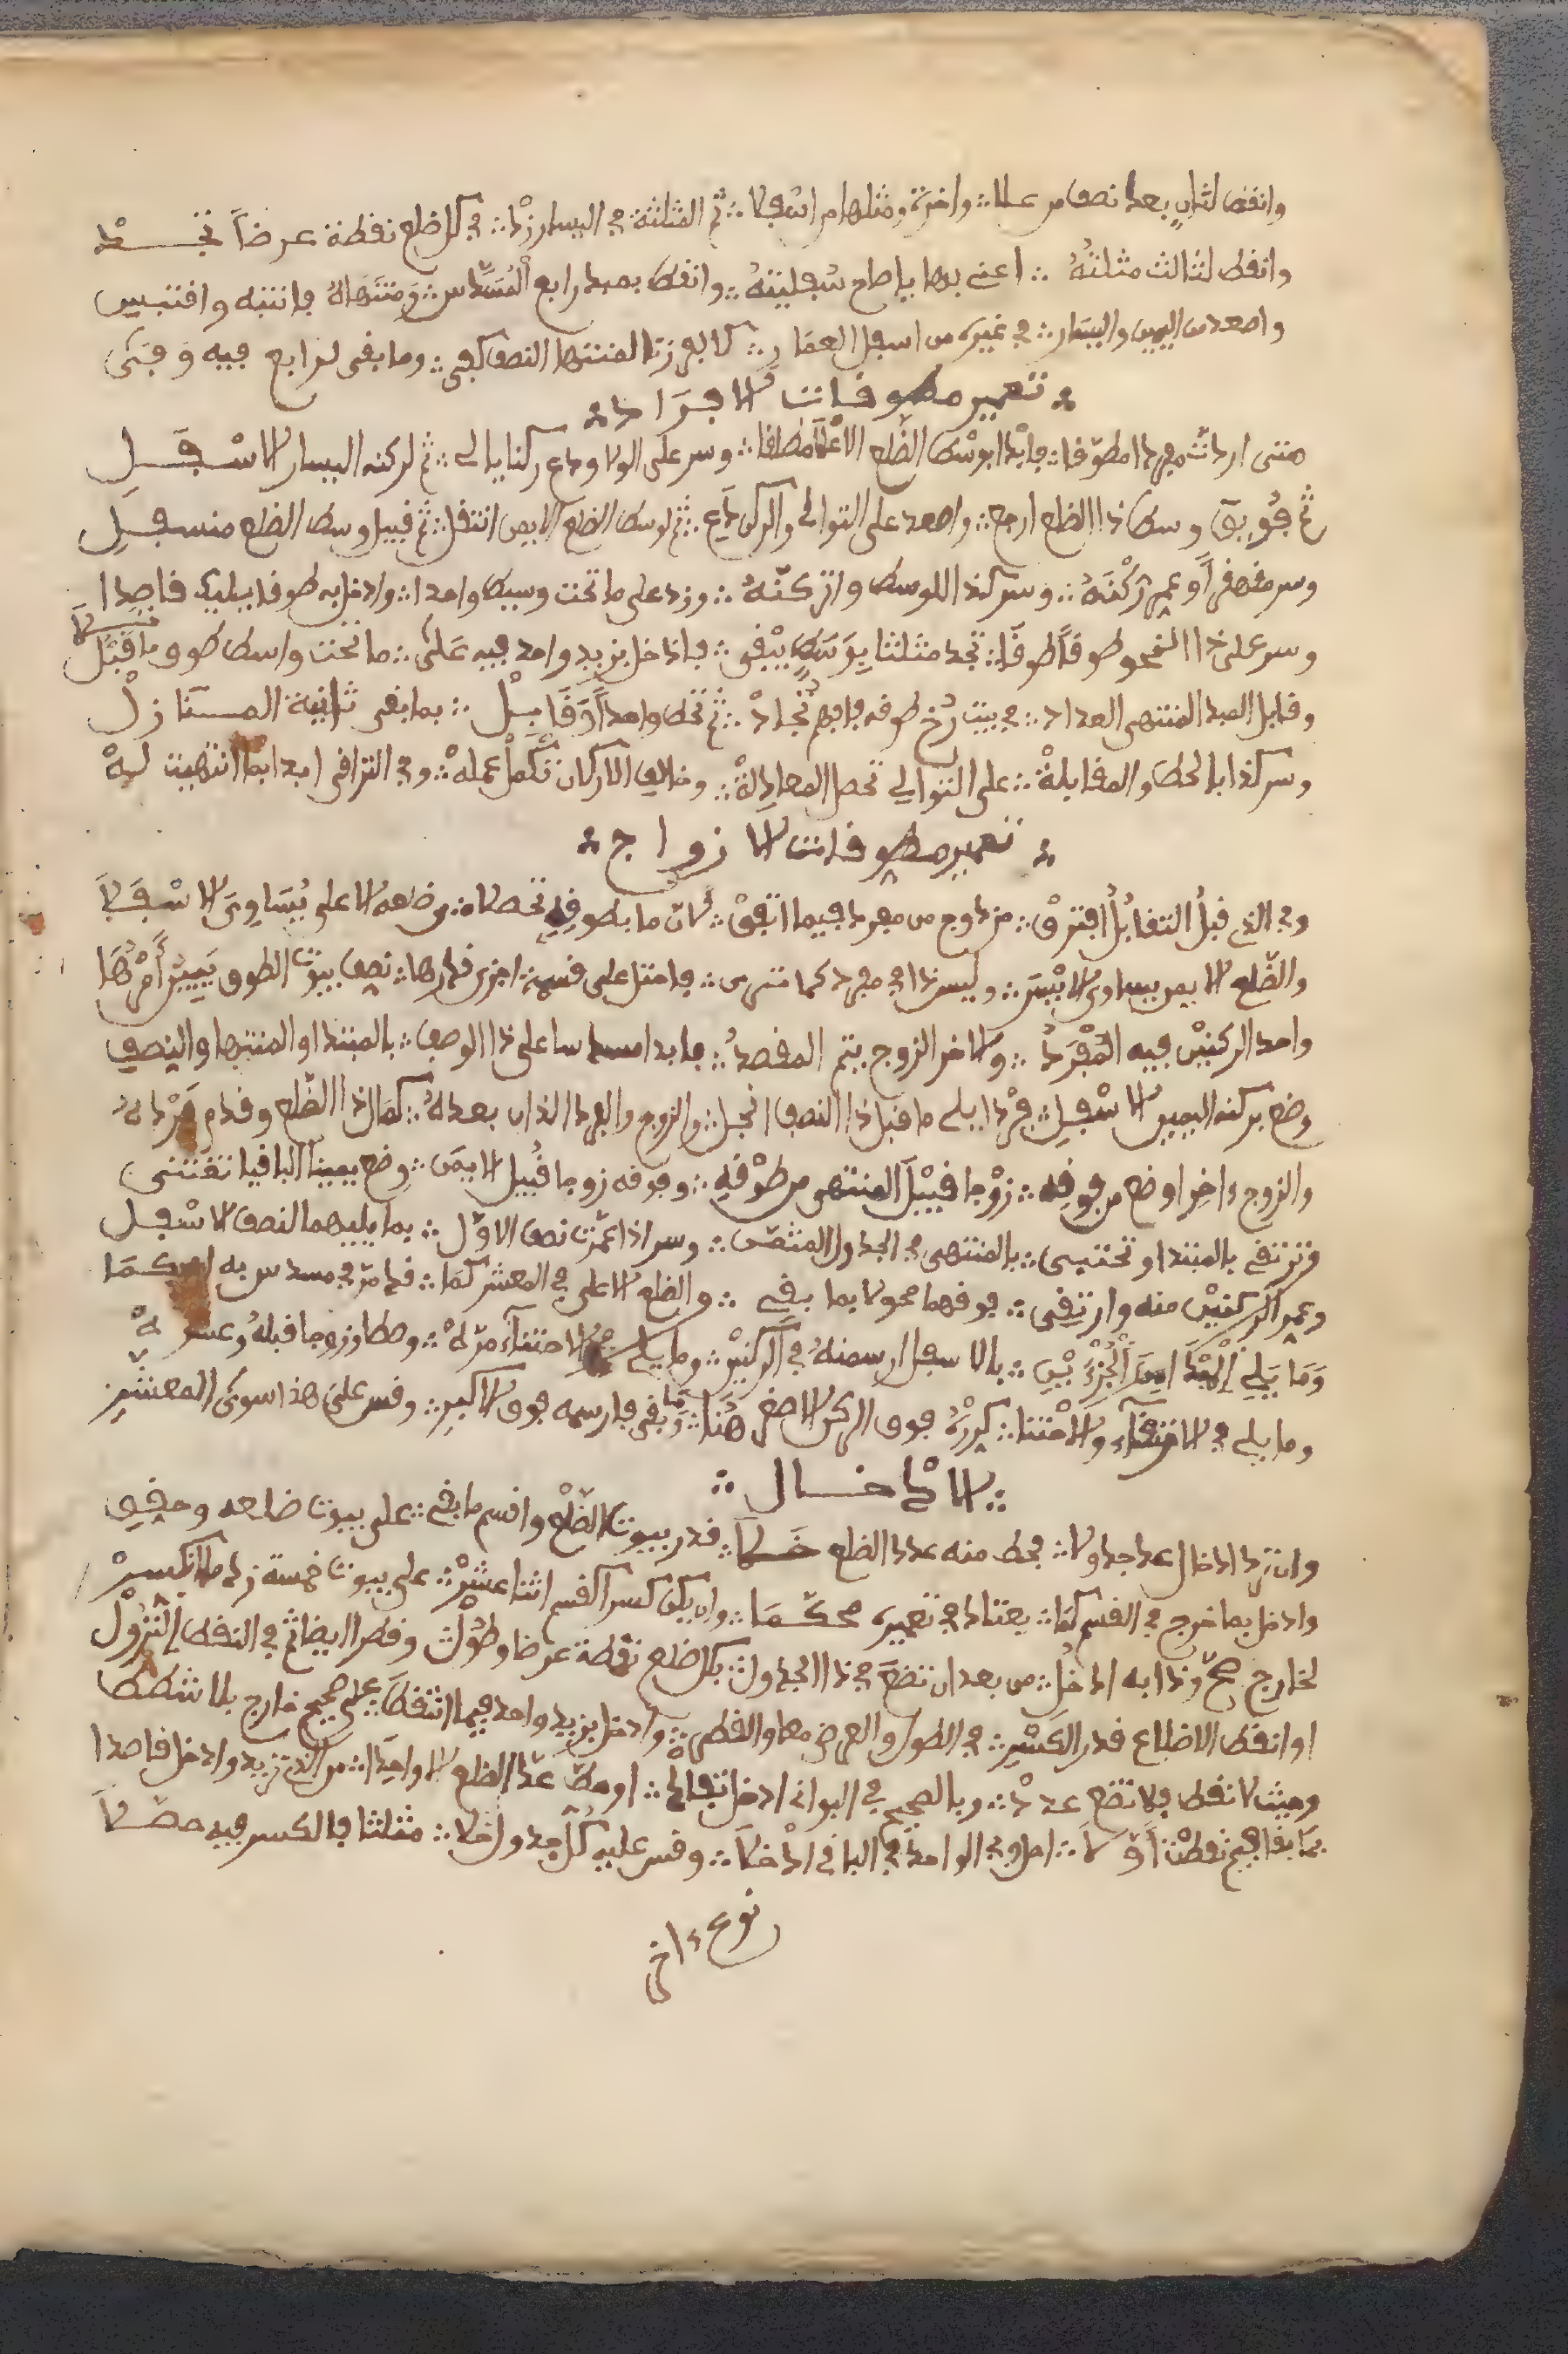 وانقط لثان بعد نصف من علا ∴ واخره ومثلها من اسفلا ∴ ثم المثلثة في اليسار زد ∴ في كل ضلع نقطة عرضا تجد
وانقط لثالث مثلثه ∴ اعني بها يا صاح سفليته ∴ وانقط بمبدا رابع المسدس ∴ ومنتهاه فانتبه واقتبس
واصعد من اليمين واليسار ∴ في غيره من اسفل العمار ∴ المنتها النصف كفى ∴ وما بقى لرابع فيه وفى
∴ تعمير مطوقات الافراد ∴
متى اردت مفردا مطوقا ∴ فابدا بوسط الضلع الاعلا مطلقا ∴ وسر على الولا ودع ركنا يالي ∴ ثم لركنه اليسار الاسفل
ثم فويق وسط ذا الضلع ارجع ∴ واصعد على التوالي والركن دع ∴ ثم لوسط الضلع الايمن انتقل ∴ ثم قبيل وسط الضلع منسفل
وسر مقهقرا وعمر ركنه ∴ وسر كذا للوسط واتركنه ∴ وزد على ما تحت وسط واحدا ∴ وادخل به طوقا يليك قاصدا
وسر على ذا النحو طوقا طوقا ∴ تجد مثلثا بوسط يبقى ∴ فادخل بزيد واحد فيه على ∴ ما تحت واسط طوق ما قبلا
وقابل المبدا لمنتهى العداد ∴ في بيت رخ طوقه فافهم تجاد ∴ ثم تحط واحدا وقابل ∴ بما بقى ثانية المنازل
وسر كذا بالحط والمقابلة ∴ على التوالي تحصل المعادلة ∴ وخالف الاركان تكمل عمله ∴ وفي التراقي ابدا بما انتهيت له
∴ تعمير مطوقات الازواج ∴
وفي الذي قبل التقابل افترق ∴ مزدوج من مفرد فيما اتفق ∴ لان ما بطوقه تحصلا ∴ من ضلعه الاعلى يساوى الاسفلا
والضلع الايمن يساوى الايسر ∴ وليس ذا في مفرد كما ترى ∴ فامتثل على قسمة اجزى قدرها ∴ نصف بيوت الطوق يبين امرها
واحد الركنين فيه المفرد ∴ والاخر الزوج يتم المقصد ∴ فابدا مسدسا على ذا الوصف ∴ بالمبتدا والمنتها والنصف
وضع بركنه اليمين الاسفل ∴ فردا يلى ما قبل ذا النصف انجل ∴ والزوج والفرد اللذان بعده ∴ كمال ذا الضلع وقدم فرده
والزوج ءاخرا وضع من فوقه ∴ زوجا قبيل المنتهى من طوقه ∴ وفوقه زوجا قبيل الايمن ∴ وضع يمينا الباقيا تقتنى
وترتقي بالمبتدا وتحتبى ∴ بالمنتهى في الجدول المثمن ∴ وسر اذا عمرت نصف الاول ∴ بما يليهما النصف الاسفل
وعمر الركنين منه وارتقى ∴ فوقهما محولا بما بقى ∴ والضلع الاعلى في المعشر كما ∴ قد مر في مسدس به احكما
وما يلي الجزءين ∴ بالاسفل ارسمنه في الركنين ∴ وما يلي الاختتاء مر له ∴ وحط زوجا قبله وعد له
وما يلي في الاقتفاء والاختنا ∴ كررنه فوق الركن الاصغر هنا ∴ وما بقى فارسمه فوق الاكبر ∴ وقس على هذا سوى المعشر
∴ الادخال ∴
وان ترد ادخال عد جدولا ∴ فحط منه عدد الضلع خلا ∴ قدر بيوت الضلع واقسم ما بقى ∴ على بيوت ضلعه وحقق
وادخل بما خرج في القسم كما ∴ يعتاد في تعميره محكما ∴ وان يكن كسرا كقسم اثنا عشر ∴ على بيوت خمسة زد ما انكسر
لخارج صح وذا به ادخل ∴ من بعد ان تضع في ذا الجدول ∴ بكل ضلع نقطة عرضا وطول ∴ وقطر ايضا ثم في النقط النزول
او انقط الاضلاع قدر الكسر ∴ في الطول والعرض معا والقطر ∴ وادخل بزيد واحد فيما انتقطا ∴ على صحيح خارج بلا شططا
وحيث لا نقط فلا تضع عدد ∴ وبالصحيح في البواقى ادخل تفاد ∴ او حط عد الضلع الا واحدا ∴ من الذي تريد وادخل قاصدا
بما بقا فيم نقطت اولا ∴ الواحد في الباقي ادخلا ∴ وقس عليه كل جدول خلا ∴ مثلثا فالكسر فيه حصلا
نوع ءاخر